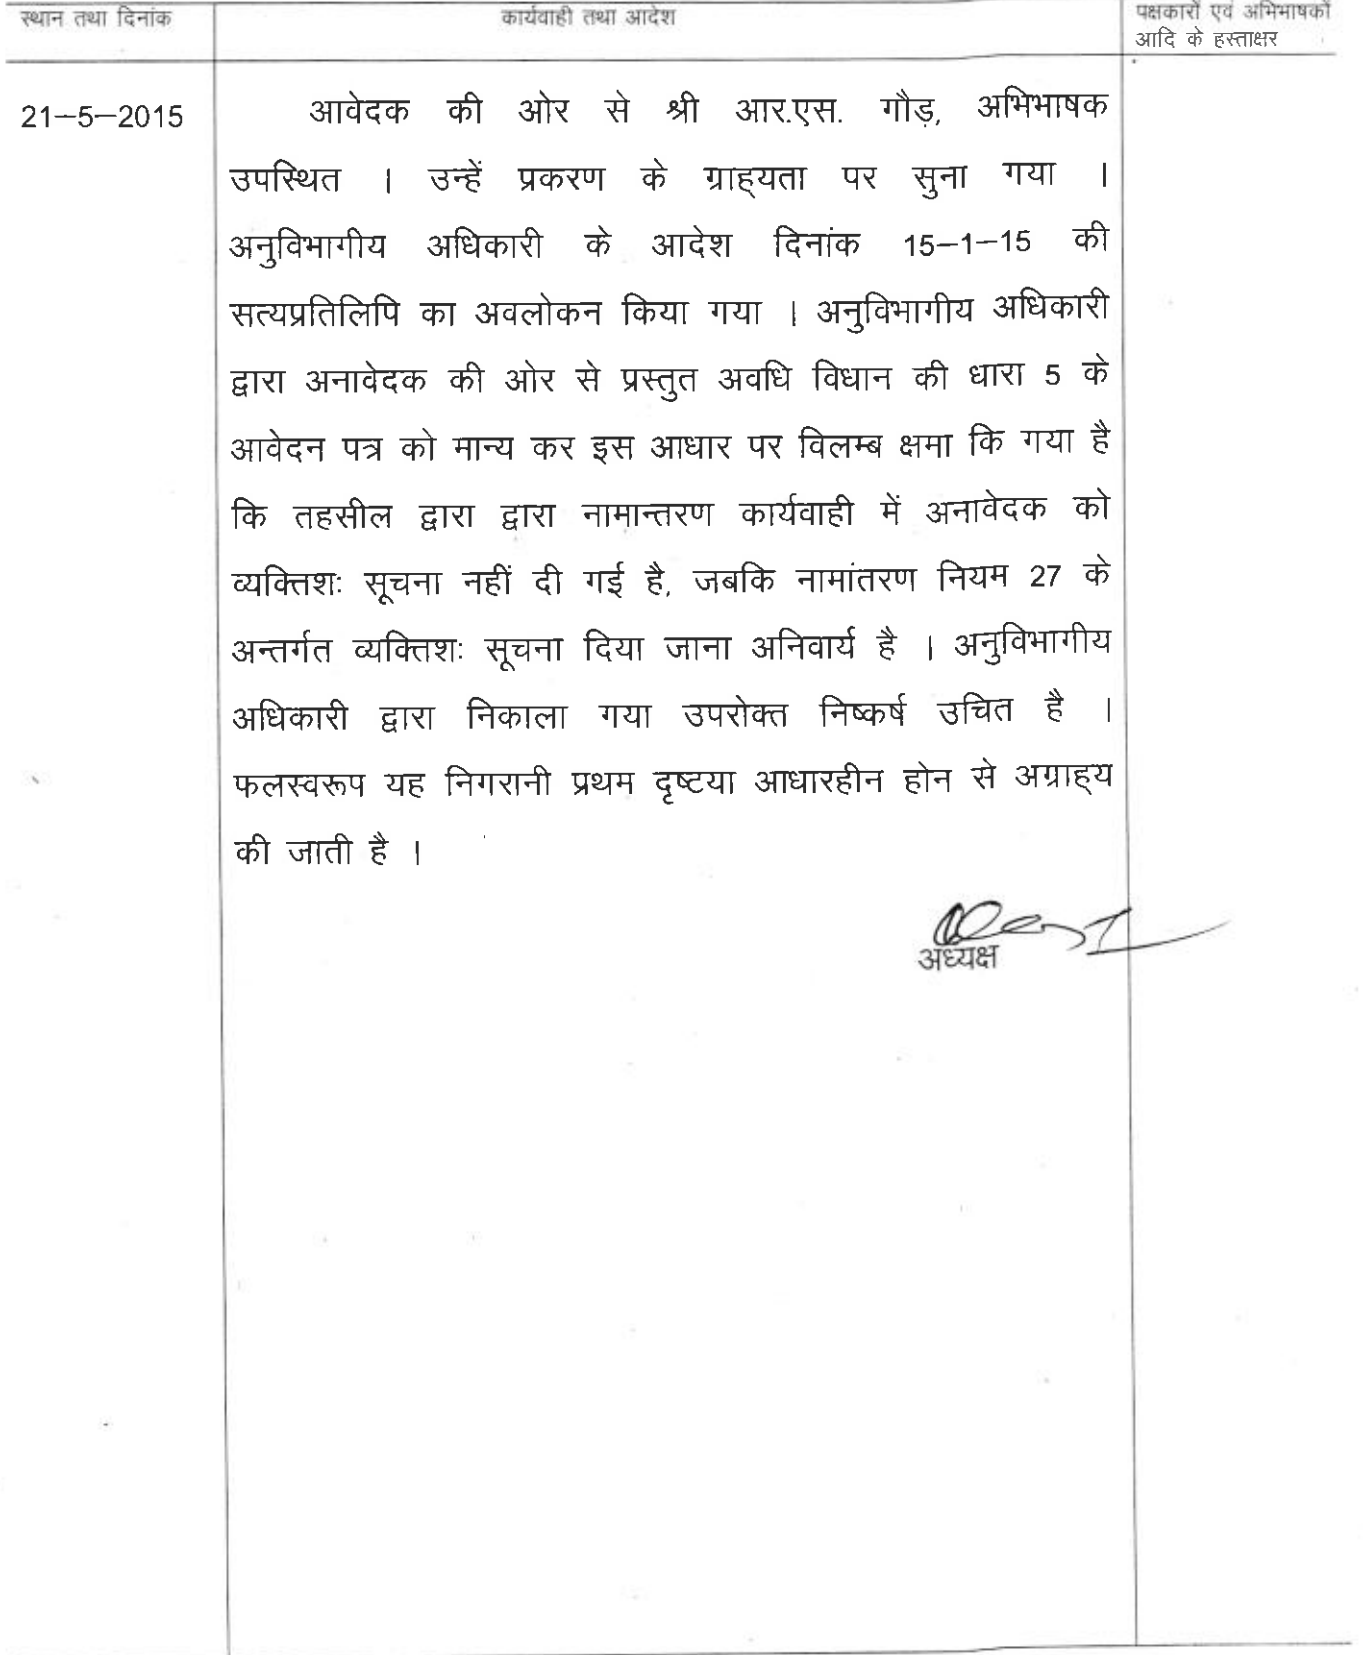 स्थान तथा दिनांक
कार्यवाही तथा आदेश
पक्षकारों एवं अभिभाषकों
आदि के हस्ताक्षर
21–5–2015
आवेदक की ओर से श्री आर.एस. गौड़, अभिभाषक
उपस्थित । उन्हें प्रकरण के ग्राह्यता पर सुना गया ।
अनुविभागीय अधिकारी के आदेश दिनांक 15–1–15 की
सत्यप्रतिलिपि का अवलोकन किया गया । अनुविभागीय अधिकारी
द्वारा अनावेदक की ओर से प्रस्तुत अवधि विधान की धारा 5 के
आवेदन पत्र को मान्य कर इस आधार पर विलम्ब क्षमा कि गया है
कि तहसील द्वारा द्वारा नामान्तरण कार्यवाही में अनावेदक को
व्यक्तिशः सूचना नहीं दी गई है, जबकि नामांतरण नियम 27 के
अन्तर्गत व्यक्तिशः सूचना दिया जाना अनिवार्य है । अनुविभागीय
अधिकारी द्वारा निकाला गया उपरोक्त निष्कर्ष उचित है ।
फलस्वरूप यह निगरानी प्रथम दृष्टया आधारहीन होन से अग्राह्य
की जाती है ।
अध्यक्ष